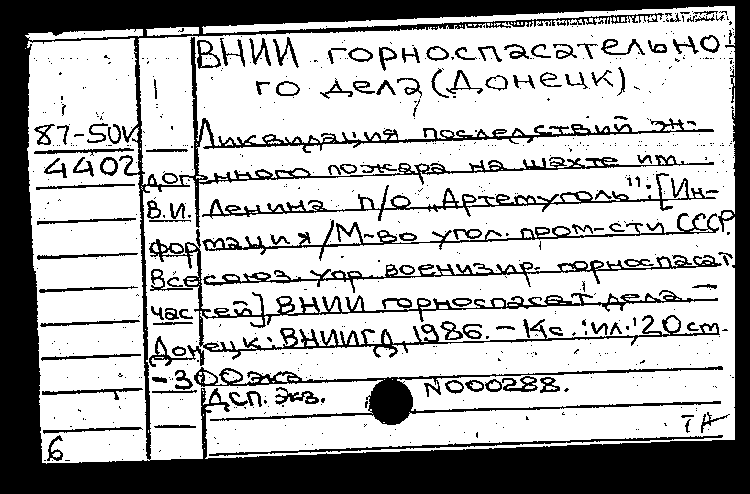 ВНИИ горноспасательно-
го дела (Донецк).
87-50К Ликвидация последствий эн-
4402 догенного пожара на шахте им.
В.И. Ленина п/о „Артемуголь": [Ин-
формация / М-во угол. пром-сти СССР.
Всесоюз. упр. военизир. горноспасат.
частей], ВНИИ горноспасат дела. –
Донецк: ВНИИГД, 1986. – Кс.: ил.; 20 см.
– 300 экз.
Дсп. Экз. N000288.
ТА
6